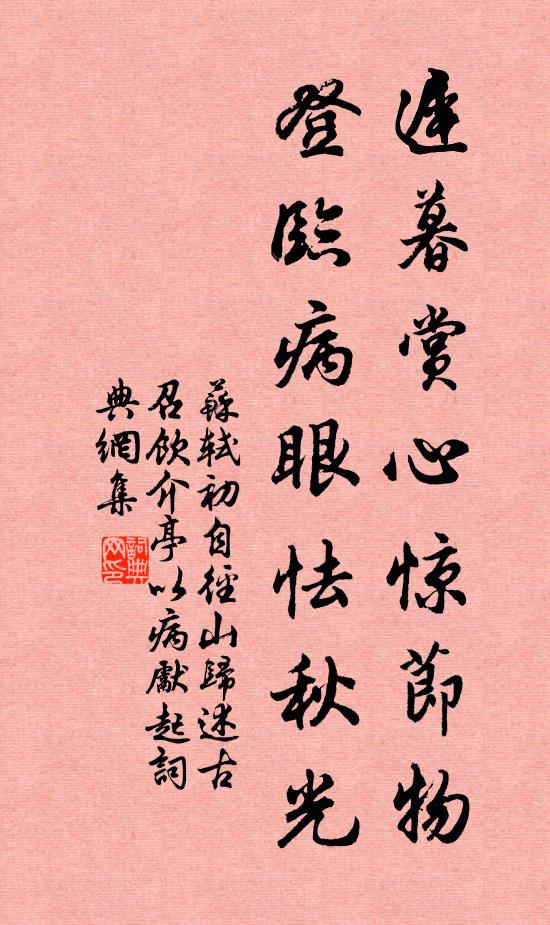 遲暮賞心惊節物
登臨病眼怯秋光
蘇軾初自徑山歸述古
召飲介亭以病獻起詞
典網集
詞典
网印